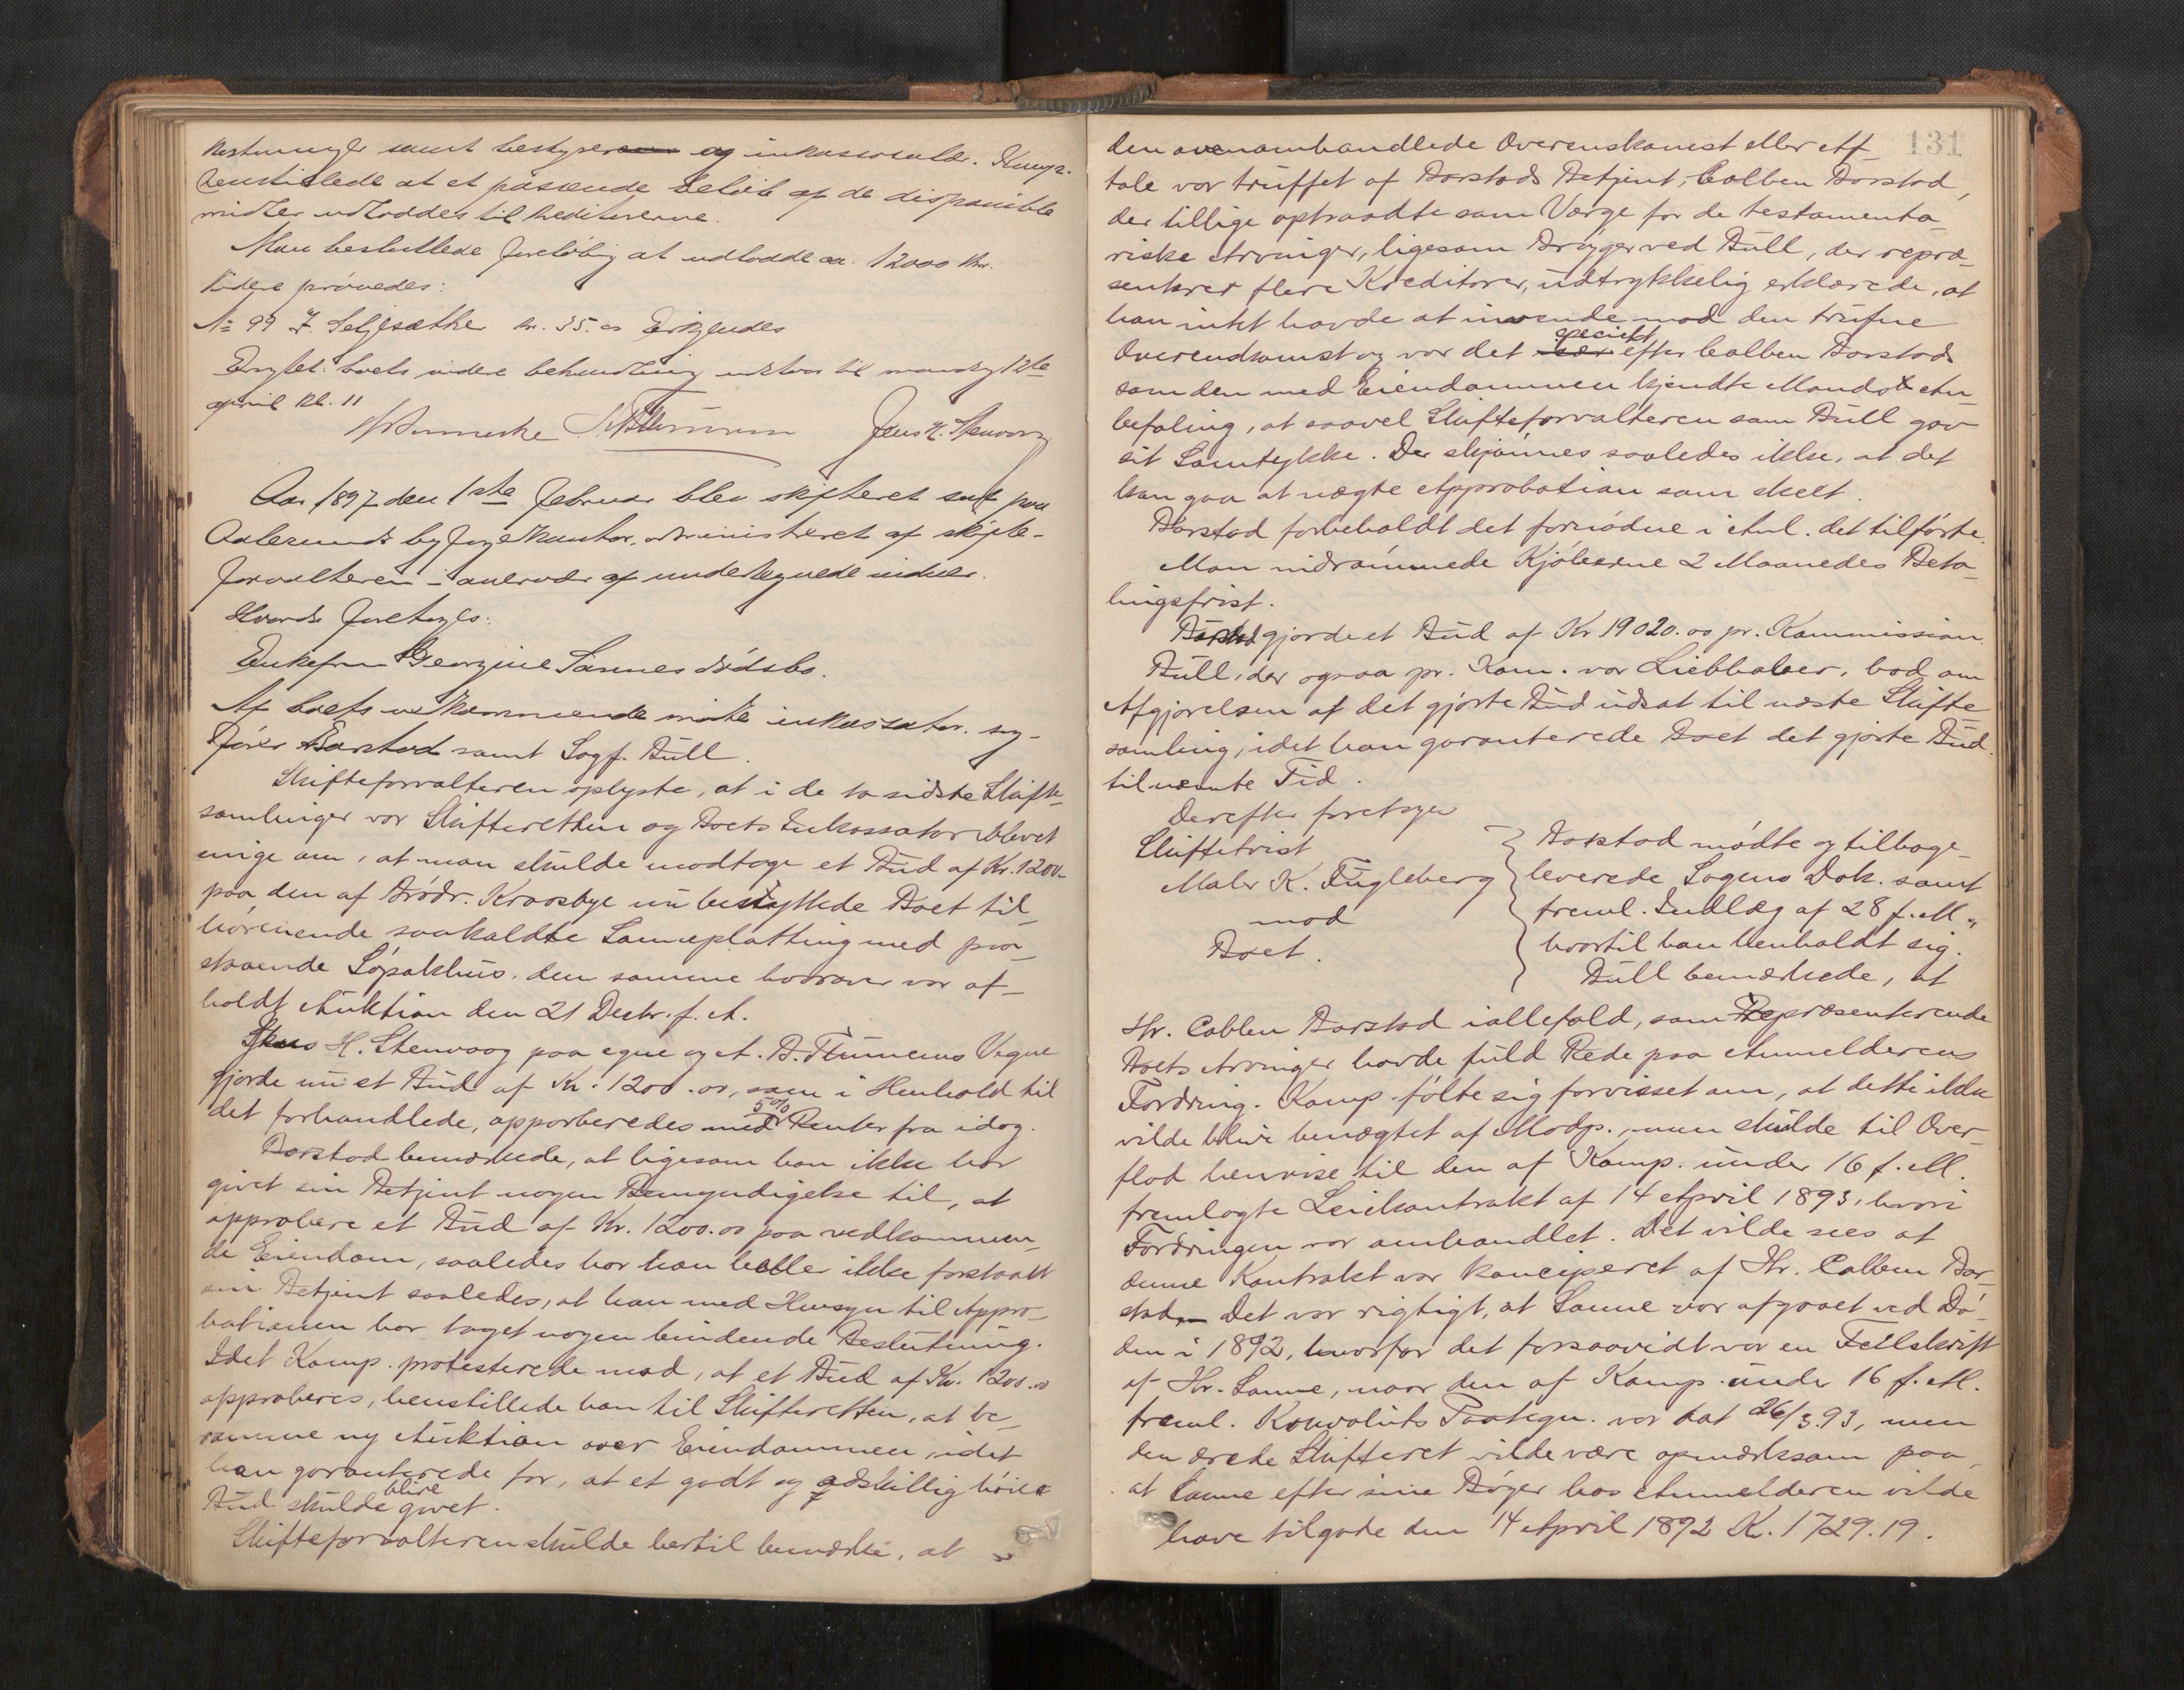 kostninger samt bestyrer og inkassosalær. Kamp.
henstillede at et passende beløb af de disponible
midler udloddes til kreditorerne.
Man besluttede foreløbig at udlodde ca. 12000 Kr.
Videre prøvedes:
No 99 J. Seljesæther kr. 35.00 Erkjendes
boets videre behandling udstod til mandag 12te
april kl. 11
Aar 1897 den 1ste februar blev skifteret sat paa
Aalesunds byfogedkontor, administreret af skifte-
forvalteren i overvær af undertegnede vidner.
Hvorda foretoges:
Enkefru Georgine Sannes dødsbo.
Af boets vedkommende mødte inkassator, sag-
fører Barstad samt Sagf. Bull.
Skifteforvalteren oplyste, at i de to sidste Skifte-
samlinger var Skifteretten og Boets Inkassator blevet
enige om, at man skulde modtage et Bud af Kr. 1200-
paa den af Brødr. Kraasbye nu benyttede Boet til-
hørenende saakaldte Sanneplatting med paa-
staaende Søpakhus, den samme hvorover var af-
holdt Auktion den 21 Decbr. f. A.
Jens H. Stenvaag paa egne og A. B. Vegne
gjorde nu et Bud af Kr. 1200.00, som i Henhold til
det forhandlede, apporberedes med 5% Renter fra idag.
Barstad bemærkede, at ligesom han ikke har
givet sin Betjent nogen Bemyndigelse til, at
approbere et Bud af Kr. 1200.00 paa vedkommen-
de Eiendom, saaledes har han heller ikke forstaaet
sin Betjent saaledes, at han med Hensyn til Appro-
bationen har taget nogen bindende Beslutning.
Idet Komp. protesterede mod, at et Bud af Kr. 1200.00
approberes, henstillede han til Skifteretten, at be-
ramme ny Auktion over Eiendommen, idet
han garanterede for, at et godt og adskillig høiere
Bud skulde blive givet.
Skifteforvalteren skulde hertil bemærke, at
131
den ovenomhandlede Overenskomst eller Af-
tale var truffet af Barstads Betjent, Colben Barstad,
der tillige optraadte som Værge for de testamenta-
riske Arvinger, ligesom Brygger ved Bull, der repræ-
senterer flere Kreditorer, udtrykkelig erklærede, at
han intet havde at indvende mod den trufne
Overendkomst og var det specielt efter Colben Barstads
som den med Eiendommen kjendte Mands An-
befaling, at saavel Skifteforvalteren som Bull gav
sit Samtykke. Der skjønnes saaledes ikke, at det
kan gaa at nægte Approbation som skeet.
Barstad forbeholdt det fornødne i Anl. det tilførte.
Man indrømmede Kjøberne 2 Maanedes Beta-
lingsfrist.
Barstad gjorde et Bud af Kr 19020.00 pr. Kommission.
Bull, der ogsaa pr. Kom. var Liebhaber, bad om
Afgjørelsen af det gjorte Bud udsat til næste Skifte
samling, idet han garanterede Boet det gjorte Bud
til nævnte Tid.
Derefter foretoges
Skiftetvist
Maler K. Fugleberg
mod
Boet.
Barstad mødte og tilbage-
leverede Sagens Dok. samt
freml. Indlæg af 28 f. M.,
hvortil han henholdt sig.
Bull bemærkede, at
Hr. Colben Barstad iallefald, som Repræsenterende
Boets Arvinger havde fuld Rede paa Anmelderens
Fordring. Komp. følte sig forvisset om, at dette ikke
vilde blive benægtet af Modp., men skulde til Over-
flod henvise til den af Komp. under 16 f. M.
fremlagte Leiekontrakt af 14 April 1893, hvori
Fordringen var omhandlet. Det vilde sees at
denne Kontrakt var konciperet af Hr. Colben Bar-
stad. Det var rigtigt, at Sanne var afgaaet ved Dø-
den i 1892, hvorfor det forsaavidt var en Feilskrift
af Hr. Sanne, naar den af Komp. under 16 f. M.
freml. Konvoluts Paategn. var dat 26/3.93, men
den ærede Skifteret vilde være opmærksom paa,
at Sanne efter sine Bøger hos Anmelderen vilde
have tilgode den 14 April 1892 K. 1729.19.